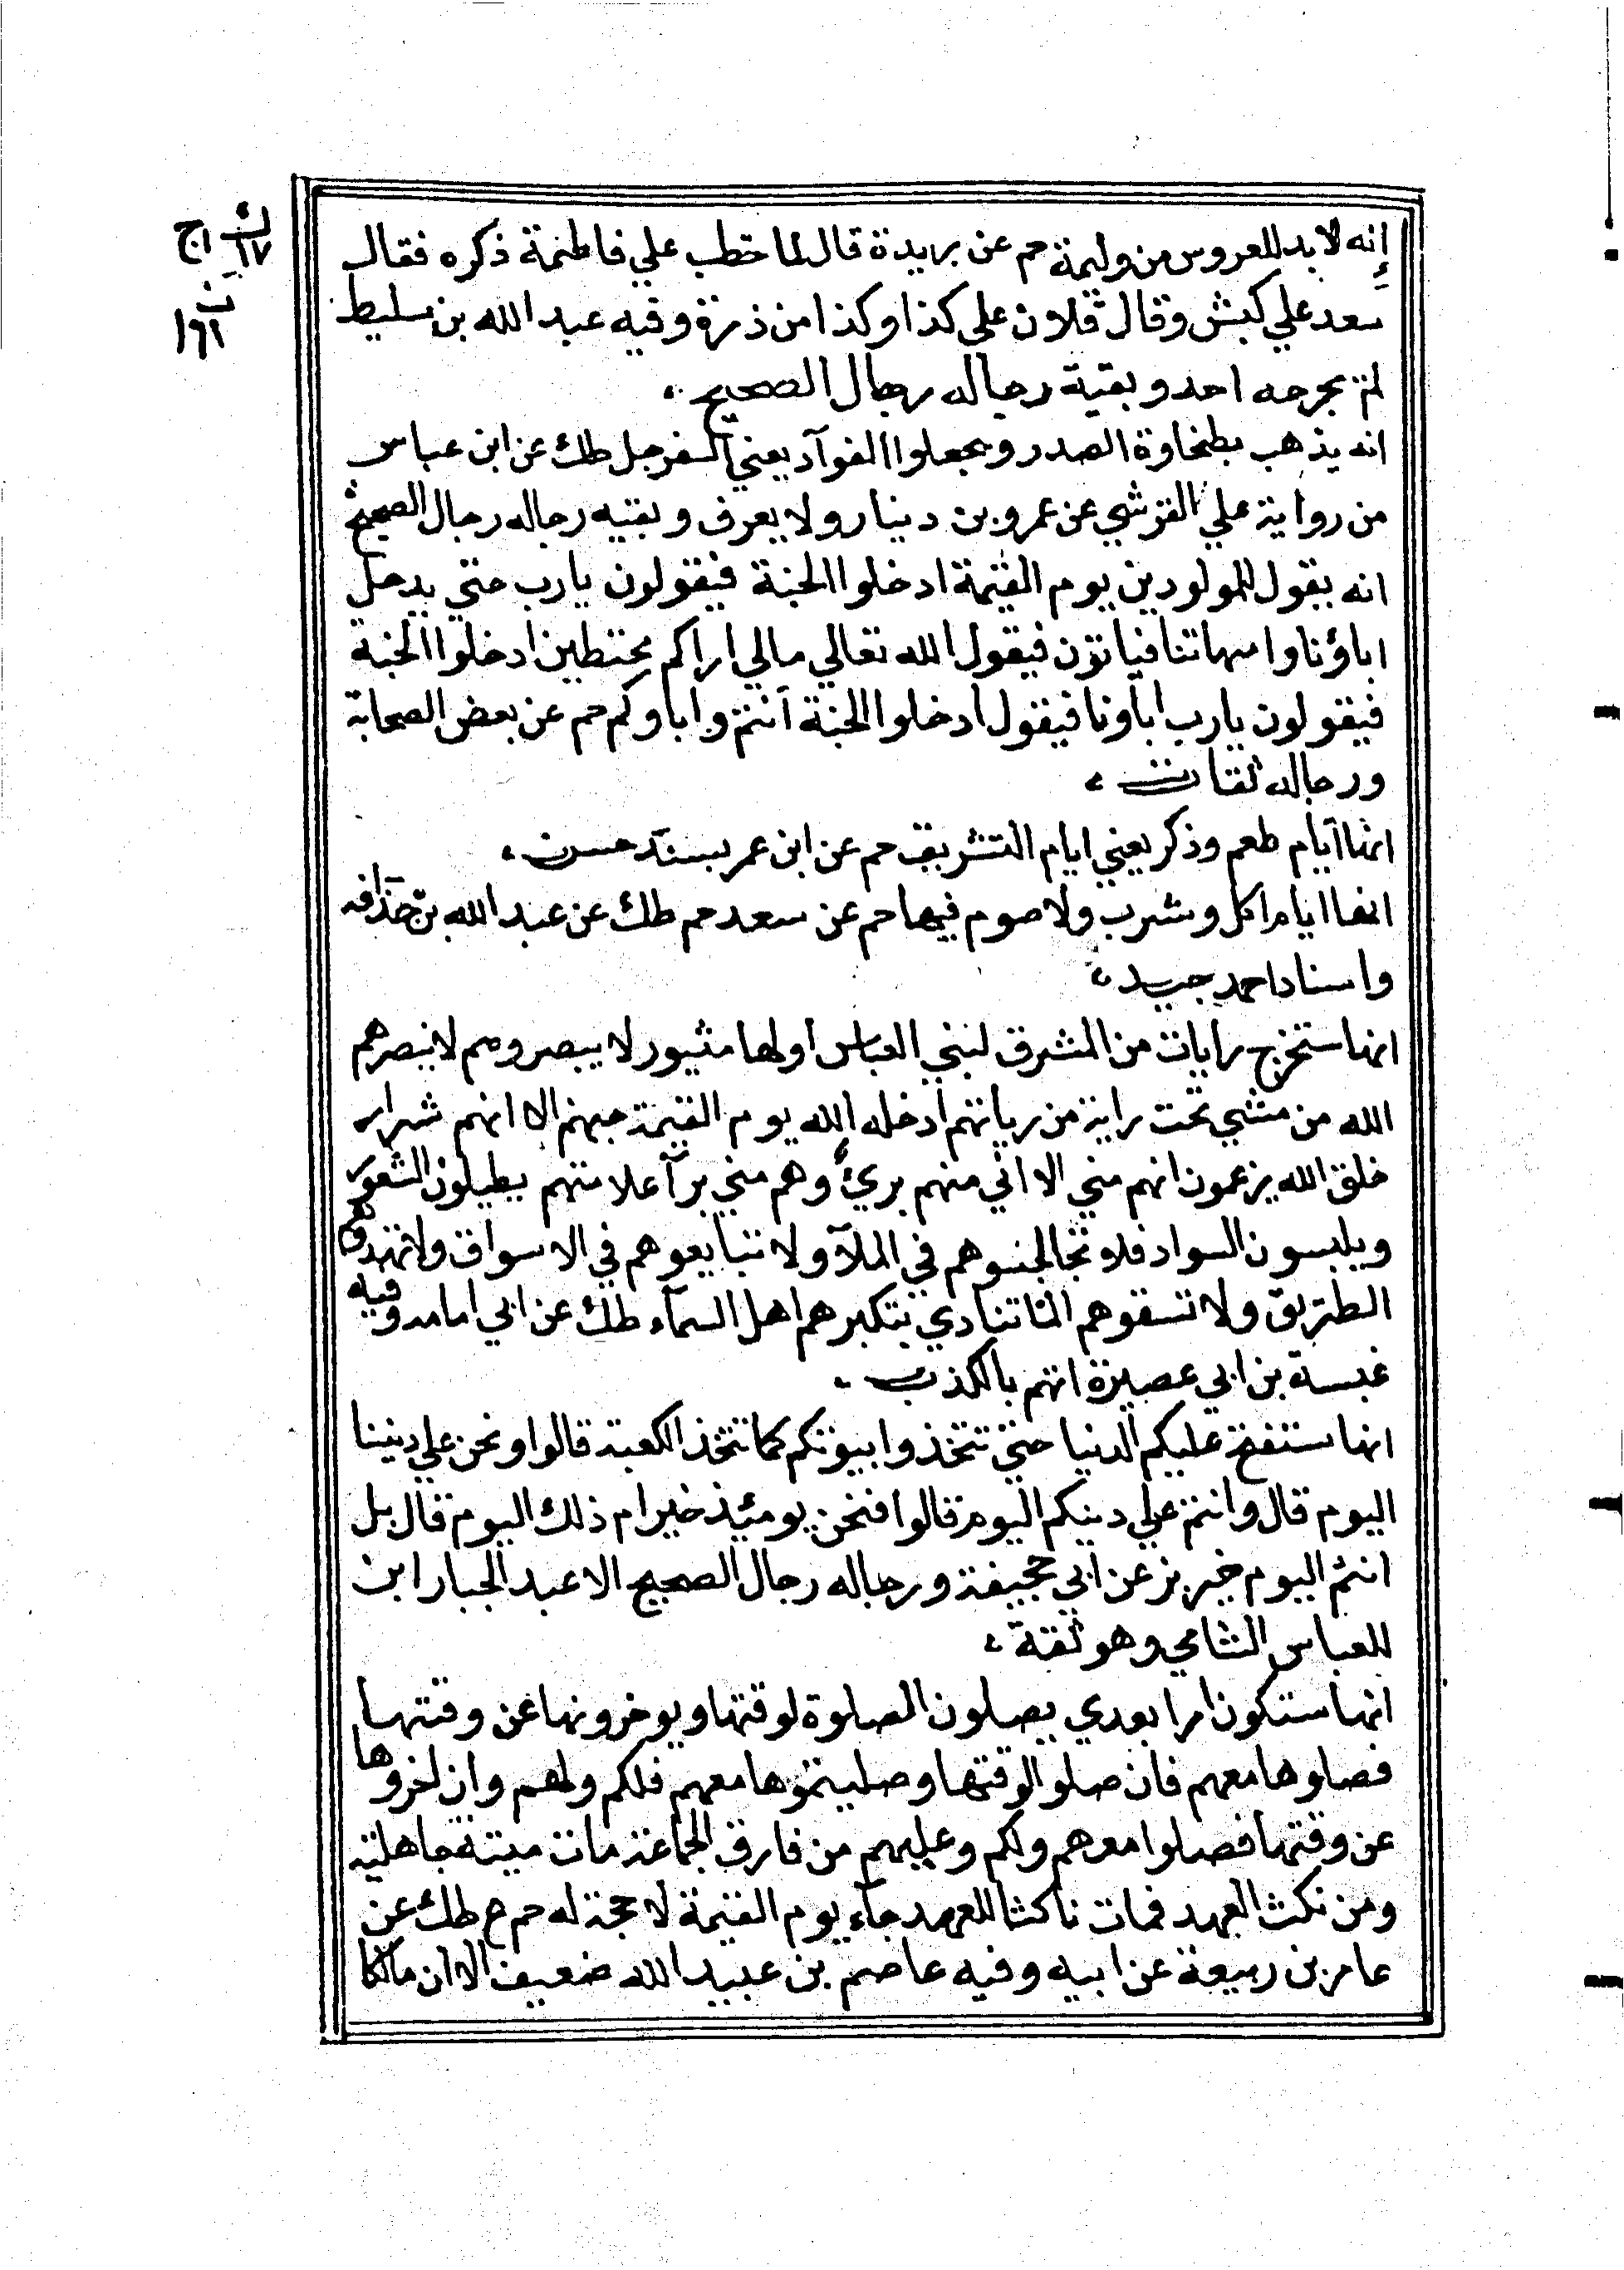 إنه لا بد للعروس من وليمة حم عن بريدة قال لما خطب علي فاطمة ذكره فقال
سعد علي كبش وقال فلان علي كذا وكذا من ذرة وفيه عبد الله بن سليط
لم يجرحه احد وبقية رجاله رجال الصحيح
انه يذهب بطخاوة الصدر ويجعلوا الفوآد يعني السفرجل طك عن ابن عباس
من رواية علي القرشي عن عمرو بن دينار ولا يعرف وبقيه رجاله رجال الصحيح
انه يقول للمولودين يوم القيمة ادخلوا الجنة فيقولون يارب حتي يدخل
اباؤنا وامهاتنا فياتون فيقول الله تعالي مالي اراكم محتطين ادخلوا الجنة
فيقولون يارب اباونا فيقول ادخلوا الجنة انتم واباوكم حم عن بعض الصحابة
ورجاله ثقات
انها ايام طعم وذكر يعني ايام التشريق حم عن ابن عمر بسند حسن
انها ايام اكل وشرب ولا صوم فيها حم عن سعد حم طك عن عبد الله بن حذافه
واسناد احمد جيد
انها ستخرج رايات من المشرق لبني العباس اولها مثبور لا ينصروهم لا نصرهم
الله من مشي تحت راية من رياتهم ادخله الله يوم القيمة جهنم الا انهم شرار
خلق الله يزعمون انهم مني الا اني منهم بريء وهم مني برآ علامتهم يطيلون الشعور
ويلبسون السواد فلا تجالسوهم في الملآ ولا تبايعوهم في الاسواق ولا تهدوهم
الطريق ولا تسقوهم الما تنادي بتكبرهم اهل السمآء طك عن ابي امامه وفيه
عبسة بن ابي صغيرة اتهم بالكذب
انها ستفتح عليكم الدنيا حتي تتخذوا بيوتكم كما تتخذ الكعبة قالوا ونحن علي ديننا
اليوم قال وانتم علي دينكم اليوم قالوا فنحن يومئذ خير ام ذلك اليوم قال بل
انتم اليوم خير بز عن ابي جحيفة ورجاله رجال الصحيح الا عبد الجبار ابن
العباس الشامي وهو ثقة
انها ستكون امرا بعدي يصلون الصلوة لوقتها ويوخرونها عن وقتها
فصلوها معهم فان صلوا لوقتها وصليتموها معهم فلكم ولهم وان اخروها
عن وقتها فصلوا معهم ولكم وعليهم من فارق الجماعة مات ميتة جاهلية
ومن نكث العهد فمات ناكثا للعهد جآء يوم القيمة لا حجة له حم ع طك عن
عامر بن ربيعة عن ابيه وفيه عاصم بن عبيد الله ضعيف الا ان مالكا